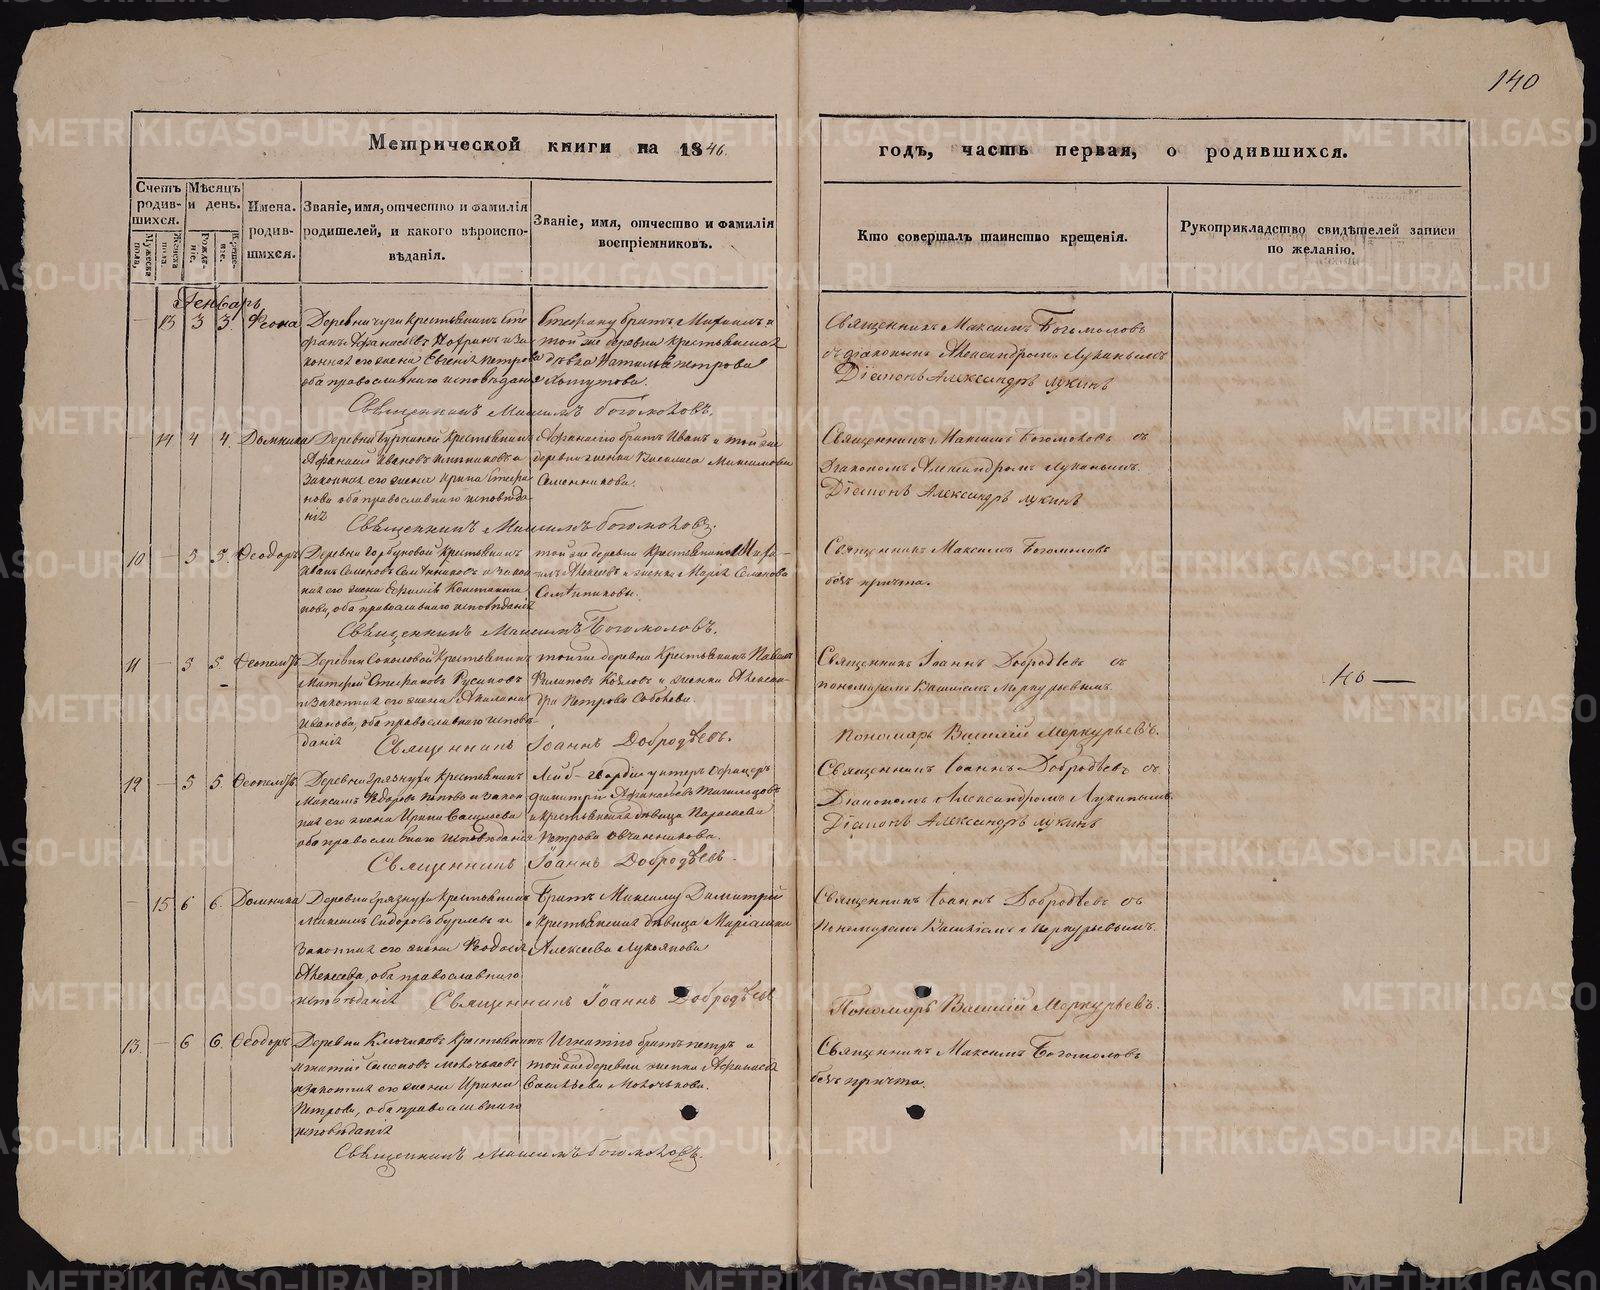 140
Метрической книги на 1846.
годъ, часть первая, о родившихся.
Счетъ родившихся.
Мужеска пола,
Женска пола
Мѣсяцъ и день.
Рожденіе,
Крещеніе.
Имена родившихся.
Званіе, имя, отчество и фамилія родителей, и какого вѣроисповѣданія.
Званіе, имя, отчество и фамилія воспріемниковъ.
Кто совершалъ таинство крещенія.
Рукоприкладство свидѣтелей записи по желанію.
Генварь
13 3 3. Ѳеона
Деревни крестьянинъ Сте
фанъ Афанасьевъ и за
конная его жена Евгенія Петрова
оба православнаго исповѣданія
Стефану братъ Михаилъ и
той же деревни крестьянская
дѣвка Наталья Петрова
Священникъ Максимъ Богомоловъ
съ діакономъ Александромъ Лукинымъ
Діаконъ Александръ Лукинъ
Священникъ Максимъ Богомоловъ.
14 4 4. Домника
Деревни Буркиной крестьянинъ
Афанасій Ивановъ и
законная его жена Ирина Стефа
нова оба православнаго исповѣда
нія
Афанасію братъ Иванъ и той же
деревни женка Василиса Максимова
Священникъ Максимъ Богомоловъ съ
Діакономъ Александромъ Лукинымъ.
Діаконъ Александръ Лукинъ
Священникъ Максимъ Богомоловъ.
10 5 5. Ѳеодоръ
Деревни Горбуновой крестьянинъ
Иванъ Семеновъ и закон
ная его жена Константи
нова, оба православнаго исповѣданія
той же деревни крестьянинъ Миха-
илъ Алексѣевъ и женка Марія Семенова
Священникъ Максимъ Богомоловъ
безъ причта.
Священникъ Максимъ Богомоловъ.
11 5 5. Ѳеопемптъ
Деревни Соколовой крестьянинъ
Матвей Стефановъ Русиновъ
и законная его жена Акилина
Иванова, оба православнаго исповѣ-
данія
той же деревни крестьянинъ Павелъ
Филиповъ Козловъ и женка Алексан-
дра Петрова Соболева.
Священникъ Іоаннъ Добродѣевъ съ
пономаремъ Василіемъ Меркурьевымъ.
Пономарь Василій Меркурьевъ.
Священникъ Іоаннъ Добродѣевъ.
12 5 5. Ѳеопемптъ
Деревни Грязнухи крестьянинъ
Максимъ Ѳедоровъ Поповъ и закон
ная его жена Ирина Васильева
оба православнаго исповѣданія
Лейб-гвардіи унтеръ офицеръ
Димитрій Афанасьевъ
и крестьянская дѣвица Параскева
Петрова Овчинникова.
Священникъ Іоаннъ Добродѣевъ съ
Діакономъ Александромъ Лукинымъ.
Діаконъ Александръ Лукинъ
Священникъ Іоаннъ Добродѣевъ.
15 6 6. Домника
Деревни Грязнухи крестьянинъ
Максимъ Сидоровъ и
законная его жена Ѳеодосія
Алексѣева, оба православнаго
исповѣданія
Братъ Максиму Димитрій
и крестьянская дѣвица Маріамна
Алексѣева Лукоянова
Священникъ Іоаннъ Добродѣевъ съ
Пономаремъ Василіемъ Меркурьевымъ.
Пономарь Василій Меркурьевъ.
Священникъ Іоаннъ Добродѣевъ
13. 6 6. Ѳеодоръ
Деревни Ключиковъ крестьянинъ
Игнатій Симеоновъ
и законная его жена Ирина
Петрова, оба православнаго
исповѣданія
Игнатію братъ Петръ и
той же деревни женка Афанасія
Савельева
Священникъ Максимъ Богомоловъ
безъ причта.
Священникъ Максимъ Богомоловъ.
METRIKI.GASO-URAL.RU